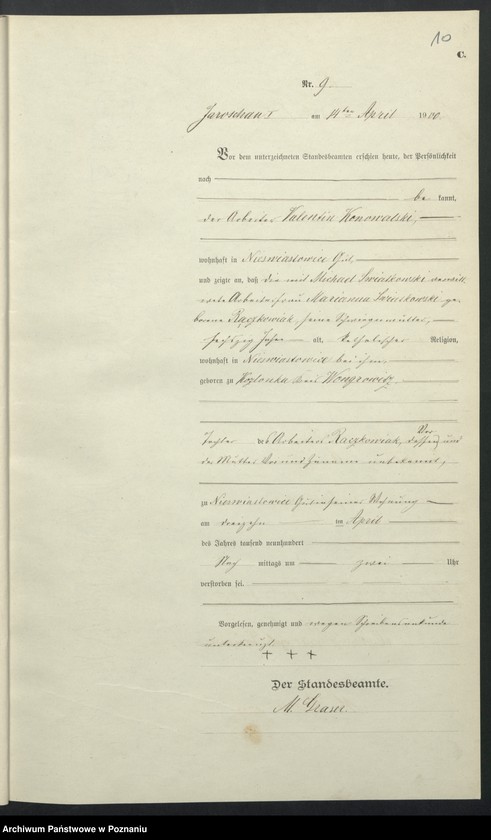 10
C.
Nr. 9
Jaroschau I am 14ten April 1900
Vor dem unterzeichneten Standesbeamten erschien heute, der Persönlichkeit
nach
be kannt,
der Arbeiter Valentin Konowalski,
wohnhaft in Nieswiastowice Gut,
und zeigte an, daß die mit Michael Swiatkowski verwitt
wete Arbeiterfrau Marianna Swiatkowski ge
borene Raczkowiak, seine Schwiegermutter,
sechszig Jahre alt, katholischer Religion,
wohnhaft in Nieswiastowice bei ihm,
geboren zu Kreis Wongrowitz,
Tochter des Arbeiters Raczkowiak, dessen Vor und
der Mutter Vor und Zuname unbekannt,
zu Nieswiastowice Gut in seiner Wohnung
am dreizehn ten April
des Jahres tausend neunhundert
Nach mittags um zwei Uhr
verstorben sei.
Vorgelesen, genehmigt und wegen Schreibensunkunde
unterkreuzt.
+ + +
Der Standesbeamte.
M.
Archiwum Państwowe w Poznaniu